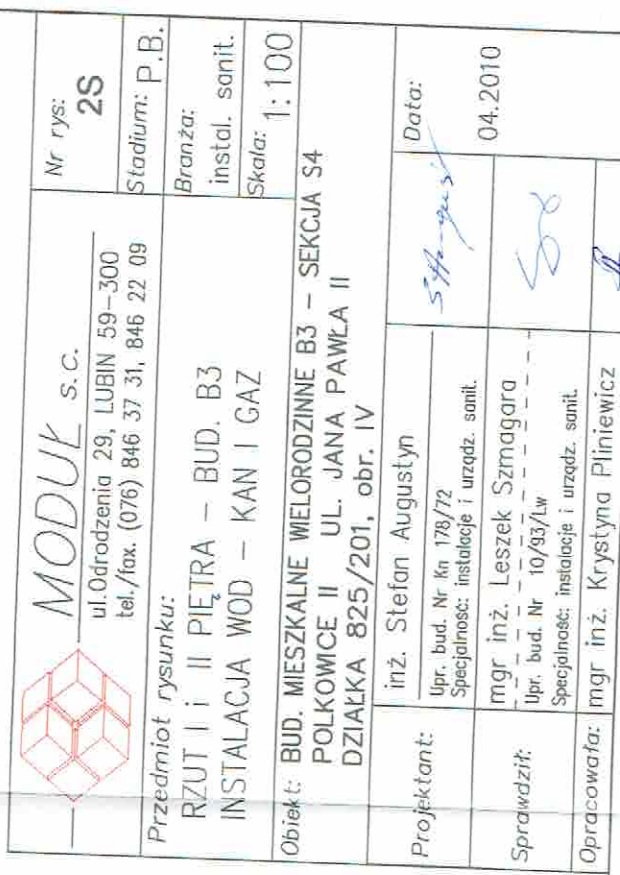 MODUŁ s.c.
ul.Odrodzenia 29, LUBIN 59-300
tel./fax. (076) 846 37 31, 846 22 09
Nr rys:
2S
Przedmiot rysunku:
RZUT I i II PIĘTRA - BUD. B3
INSTALACJA WOD - KAN I GAZ
Stadium: P.B.
Branża:
instal. sanit.
Skala: 1:100
Obiekt: BUD. MIESZKALNE WIELORODZINNE B3 - SEKCJA S4
POLKOWICE II UL. JANA PAWŁA II
DZIAŁKA 825/201, obr. IV
Projektant:
inż. Stefan Augustyn
Upr. bud. Nr Kn 178/72
Specjalność: instalacje i urządz. sanit.
Data:
04.2010
Sprawdził:
mgr inż. Leszek Szmagara
Upr. bud. Nr 10/93/Lw
Specjalność: instalacje i urządz. sanit.
Opracowała: mgr inż. Krystyna Pliniewicz